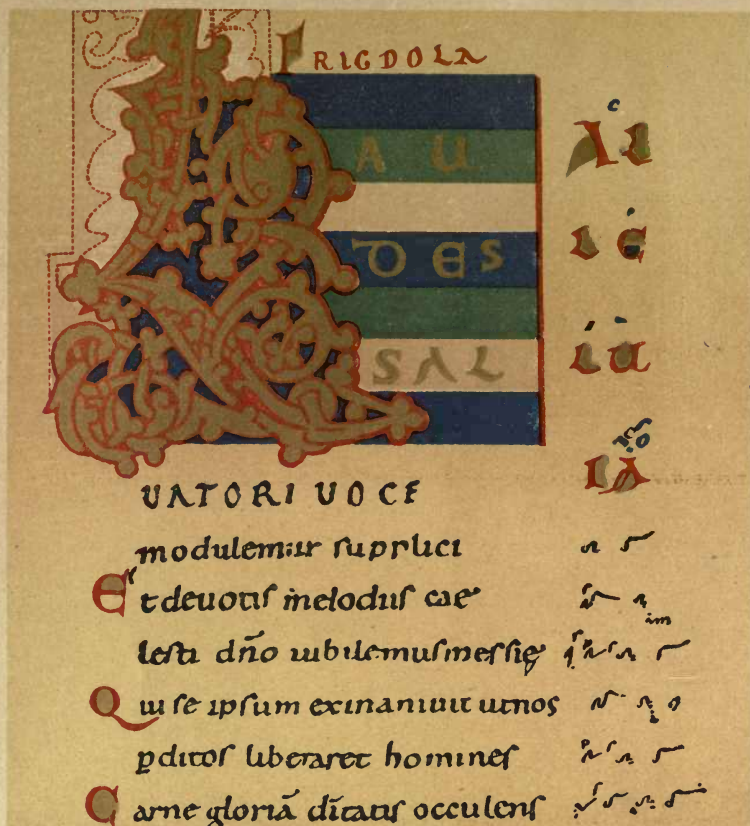 FRIGDOLA
LAU
DES
SAL
UATORI UOCE
modulemur supplici
Et deuotis melodiis cae
lesti dño iubilemus messię
Qui se ipsum exinaniuit ut nos
pditos liberaret homines
Carne gloriā dītatis occulens
AL
LE
LU
IA